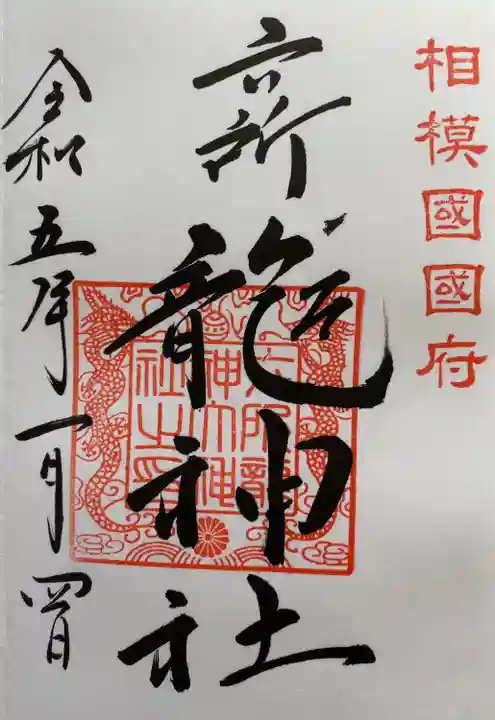 相模國國府
六所龍神社
令和五年一月四日
六所龍
神大神
社之印